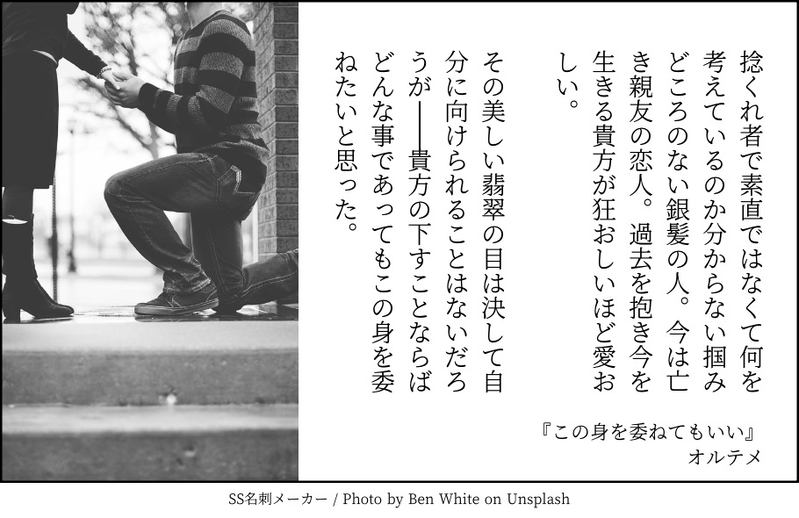 捻くれ者で素直ではなくて何を
考えているのか分からない掴み
どころのない銀髪の人。今は亡
き親友の恋人。過去を抱き今を
生きる貴方が狂おしいほど愛お
しい。
その美しい翡翠の目は決して自
分に向けられることはないだろ
うが──貴方の下すことならば
どんな事であってもこの身を委
ねたいと思った。
『この身を委ねてもいい』
オルテメ
SS名刺メーカー / Photo by Ben White on Unsplash